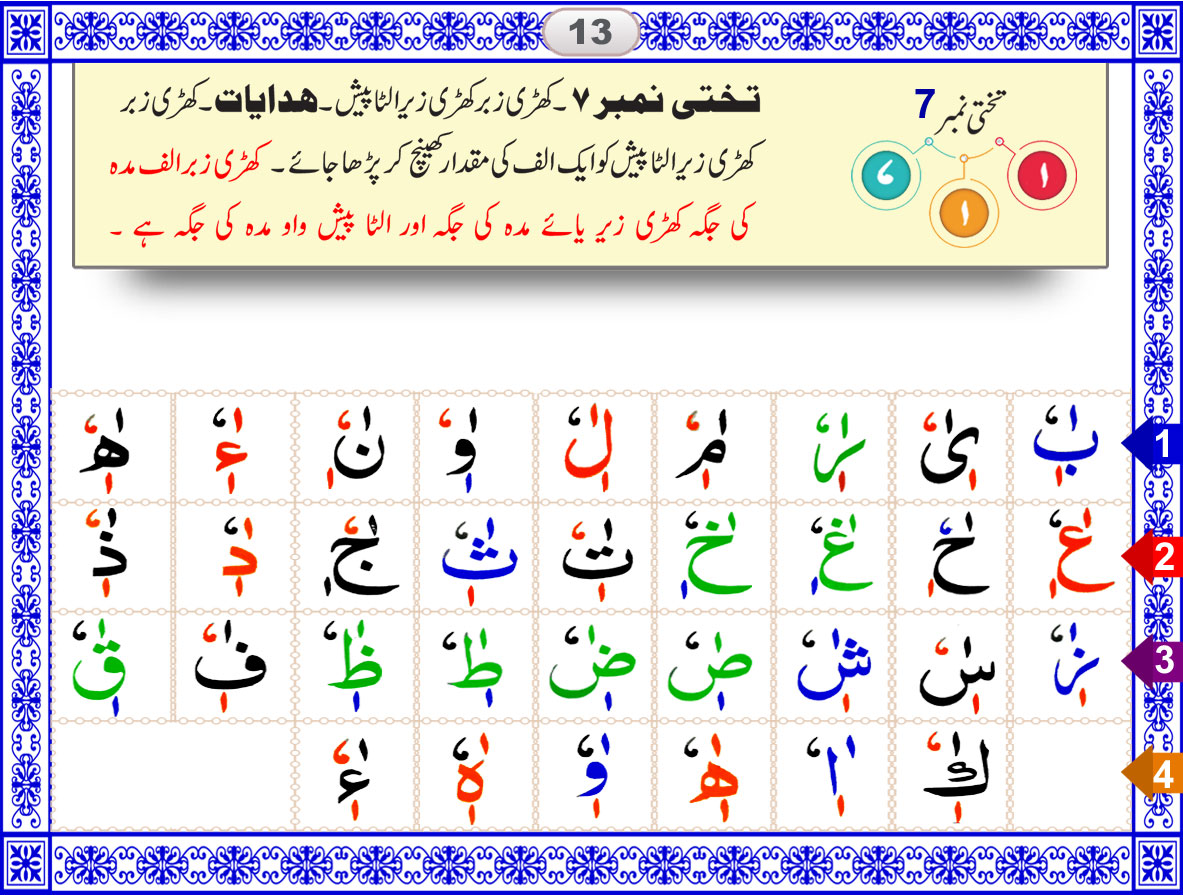 13
تختی نمبر 7
ٰ ٖ ٗ
تختی نمبر ۷ ۔ کھڑی زبر کھڑی زیر الٹا پیش ۔ ھدایات ۔ کھڑی زبر
کھڑی زیر الٹا پیش کو ایک الف کی مقدار کھینچ کر پڑھا جائے ۔ کھڑی زبر الف مدہ
کی جگہ کھڑی زیر یائے مدہ کی جگہ اور الٹا پیش واو مدہ کی جگہ ہے ۔
1 بٰٖٗ یٰٖٗ رٰٖٗ مٰٖٗ لٰٖٗ وٰٖٗ نٰٖٗ ءٰٖٗ ھٰٖٗ
2 عٰٖٗ حٰٖٗ غٰٖٗ خٰٖٗ تٰٖٗ ثٰٖٗ جٰٖٗ دٰٖٗ ذٰٖٗ
3 زٰٖٗ سٰٖٗ شٰٖٗ صٰٖٗ ضٰٖٗ طٰٖٗ ظٰٖٗ فٰٖٗ قٰٖٗ
4 كٰٖٗ اٰٖٗ ھٰٖٗ وٰٖٗ ہٰٖٗ ءٰٖٗ